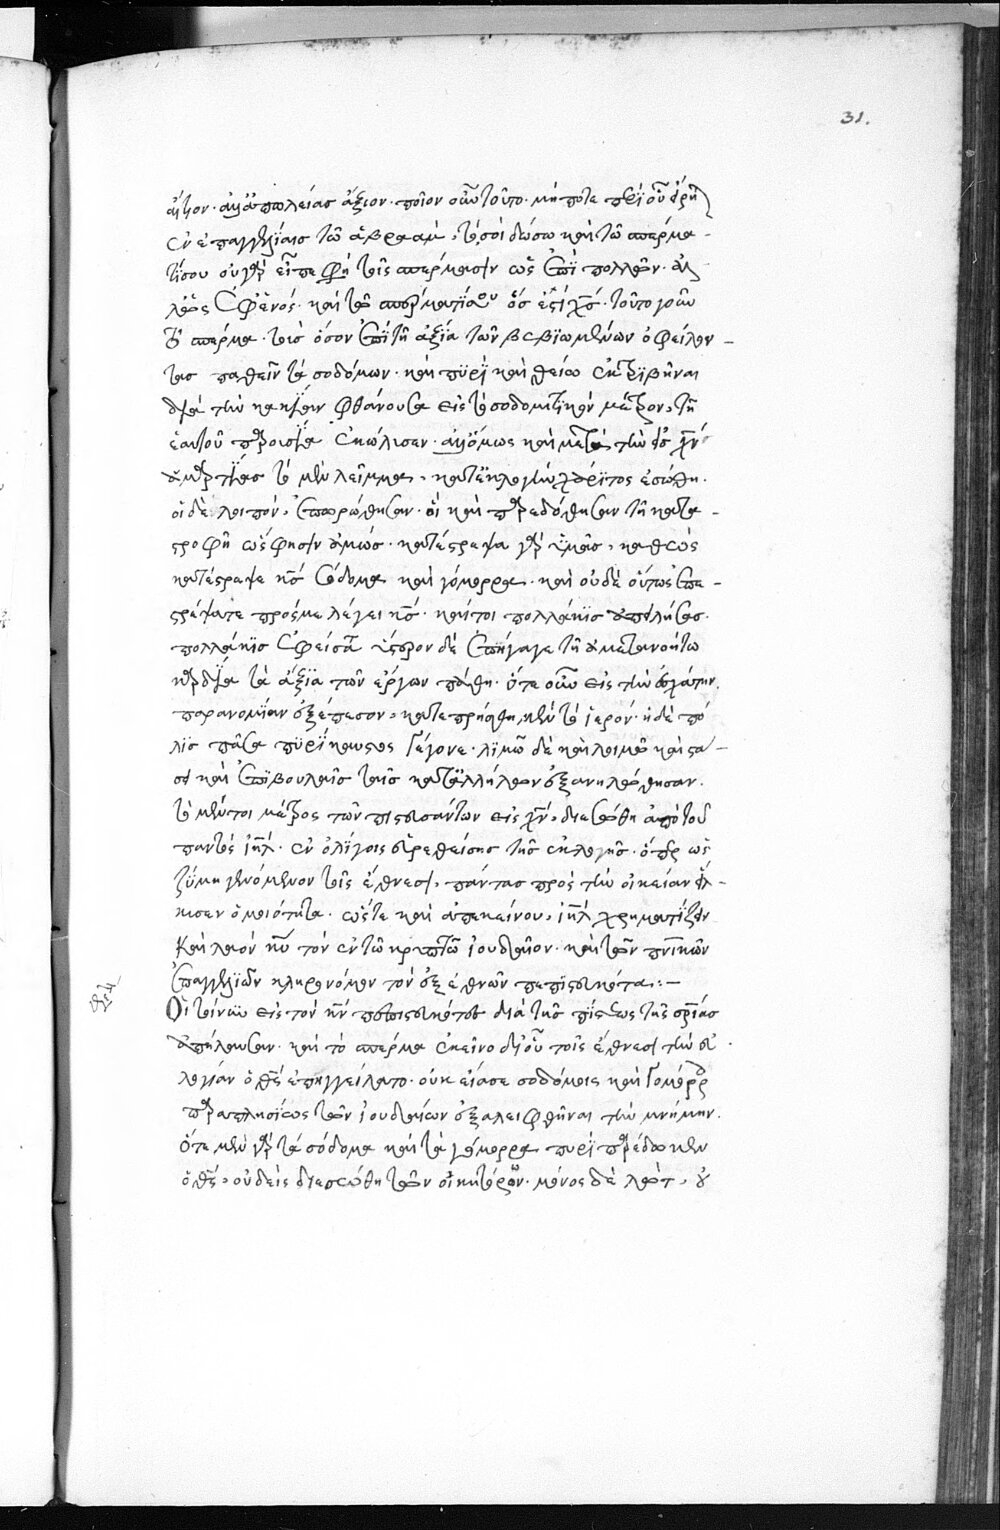 31.
αἴτιον. ἀλλ' ἀπωλείας ἄξιον. ποῖον οὖν τοῦτο. μήποτε περὶ οὗ εἴρηται
ἐν ἐπαγγελίαις τῶ ἀβραάμ, τὸ σοὶ δώσω καὶ τῶ σπέρμα-
τί σου οὐ γὰρ εἶπε φη τοῖς σπέρμασιν ὡς ἐπὶ πολλῶν. ἀλ
λ' ὡς ἐφ' ἑνός. καὶ τῶ σπέρματί σου ὅς ἐστι χς. τοῦτο γοῦν
τὸ σπέρμα. τοὺς ὅσον ἐπὶ τῆ ἀξία τῶν βεβιωμένων ὀφείλον-
τας παθεῖν τὰ σοδόμων. καὶ πυρὶ καὶ θείω ἐκτριβῆναι
διὰ τὴν κακίαν φθάνουσαν εἰς τὸ σοδομιτικὸν μέτρον, τῆ
ἑαυτοῦ παρουσία ἐκώλυσεν. ἀλλ' ὅμως καὶ μετὰ τὴν εἰς χν
ἁμαρτίας τὸ μὲν λεῖμμα, κατ' ἐκλογὴν χάριτος ἐσώθη.
οἱ δὲ λοιποὶ, ἐπωρώθησαν. οἳ καὶ παρεδόθησαν τῆ κατα-
στροφῆ ὥς φησιν ἀμώς. κατέστρεψα γὰρ ὑμᾶς, καθὼς
κατέστρεψε κς σόδομα καὶ γόμορρα. καὶ οὐδὲ οὕτως ἐπε-
στρέψατε πρός με λέγει κς. καίτοι πολλάκις ἀπειλήσας.
πολλάκις ἐφείσατο ὕστερον δὲ ἐπήγαγε τῆ ἀμετανοήτω
καρδία τὰ ἄξια τῶν ἔργων πάθη. ὅτε οὖν εἰς τὴν ἐσχάτην
παρανομίαν ἐξέπεσον, κατεπρήσθη μὲν τὸ ἱερόν. ἡ δὲ πό
λις πᾶσα πυρίκαυστος γέγονε. λιμῶ δὲ καὶ λοιμῶ καὶ στά-
σει καὶ ἐπιβουλαῖς ταῖς κατ' ἀλλήλων ἐξανηλώθησαν.
τὸ μέντοι μέρος τῶν πιστευσάντων εἰς χν, διεσώθη ἀπὸ τοῦ
παντὸς ἰηλ. ἐν ὀλίγοις εὑρεθείσης τῆς ἐκλογῆς. ὅπερ ὡς
ζύμη γενόμενον τοῖς ἔθνεσι, πάντας πρὸς τὴν οἰκείαν εἵλ-
κυσεν ὁμοιότητα. ὥστε καὶ ἀπ' ἐκείνου, ἰηλ χρηματίζειν
καὶ λαὸν κυ τὸν ἐν τῶ κρυπτῶ ἰουδαῖον. καὶ τῶν πνικῶν
ἐπαγγελιῶν κληρονόμον τὸν ἐξ ἐθνῶν πεπιστευκότα:-
Οἱ τοίνυν εἰς τὸν κν πεπιστευκότες διὰ τῆς πίστεως τῆς σρίας
ἀπήλαυσαν. καὶ τὸ σπέρμα ἐκεῖνο δι' οὗ τοῖς ἔθνεσι τὴν εὐ
λογίαν ὁ θς ἐπηγγείλατο. οὐκ εἴασε σοδόμοις καὶ γομόρροις
παραπλησίως τῶν ἰουδαίων ἐξαλειφθῆναι τὴν μνήμην.
ὅτε μὲν γὰρ τὰ σόδομα καὶ τὰ γόμορρα πυρὶ παρέδωκεν
ὁ θς, οὐδεὶς διεσώθη τῶν οἰκητόρων. μόνος δὲ λώτ, ὁ